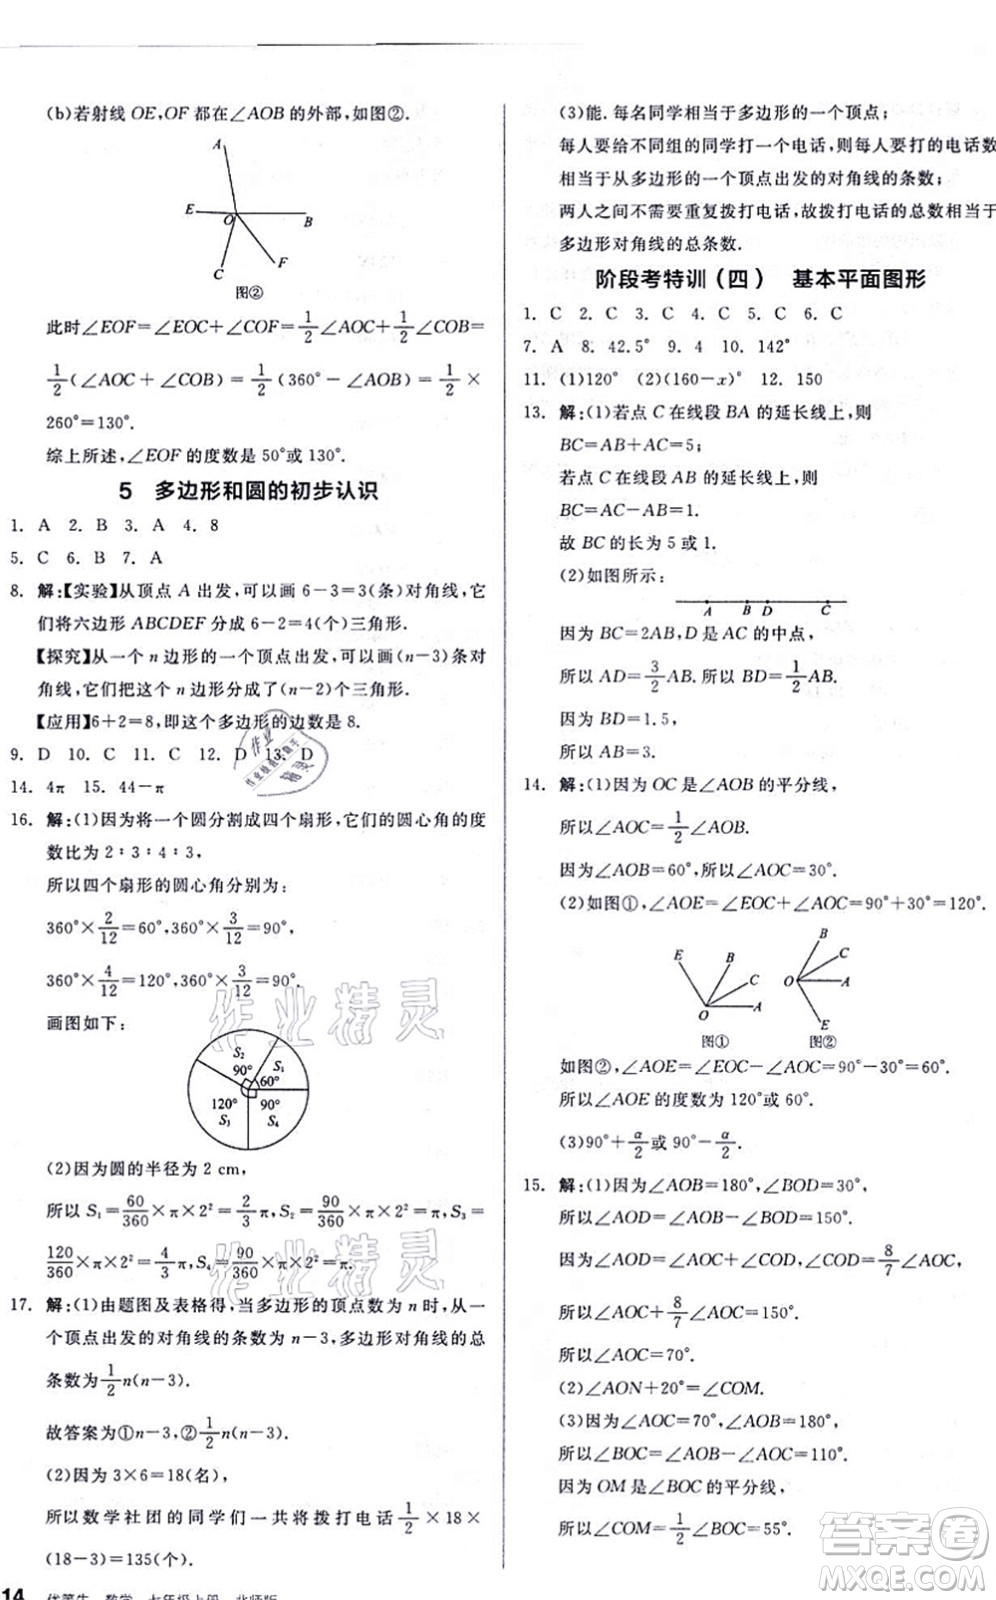 (b)若射线 OE,OF 都在∠AOB 的外部,如图②.
A
E
O
B
C
F
图②
此时∠EOF=∠EOC+∠COF=1/2∠AOC+1/2∠COB=
1/2(∠AOC+∠COB)=1/2(360°-∠AOB)=1/2×
260°=130°.
综上所述,∠EOF 的度数是 50°或 130°.
5 多边形和圆的初步认识
1. A 2. B 3. A 4. 8
5. C 6. B 7. A
8. 解:【实验】从顶点 A 出发,可以画 6-3=3(条)对角线,它
们将六边形 ABCDEF 分成 6-2=4(个)三角形.
【探究】从一个 n 边形的一个顶点出发,可以画(n-3)条对
角线,它们把这个 n 边形分成了(n-2)个三角形.
【应用】6+2=8,即这个多边形的边数是 8.
9. D 10. C 11. C 12. D 13. D
14. 4π 15. 44-π
16. 解:(1)因为将一个圆分割成四个扇形,它们的圆心角的度
数比为 2∶3∶4∶3,
所以四个扇形的圆心角分别为:
360°×2/12=60°,360°×3/12=90°,
360°×4/12=120°,360°×3/12=90°.
画图如下:
S₂
90°
S₁
60°
120°
S₃
90°
S₄
(2)因为圆的半径为 2 cm,
所以 S₁=60/360×π×2²=2/3π,S₂=90/360×π×2²=π,S₃=
120/360×π×2²=4/3π,S₄=90/360×π×2²=π.
17. 解:(1)由题图及表格得,当多边形的顶点数为 n 时,从一
个顶点出发的对角线的条数为 n-3,多边形对角线的总
条数为1/2n(n-3).
故答案为①n-3,②1/2n(n-3).
(2)因为 3×6=18(名),
所以数学社团的同学们一共将拨打电话1/2×18×
(18-3)=135(个).
14 优等生 数学 七年级上册 北师版
(3)能. 每名同学相当于多边形的一个顶点;
每人要给不同组的同学打一个电话,则每人要打的电话数
相当于从多边形的一个顶点出发的对角线的条数;
两人之间不需要重复拨打电话,故拨打电话的总数相当于
多边形对角线的总条数.
阶段考特训(四) 基本平面图形
1. C 2. C 3. C 4. C 5. C 6. C
7. A 8. 42.5° 9. 4 10. 142°
11. (1)120° (2)(160-x)° 12. 150
13. 解:(1)若点 C 在线段 BA 的延长线上,则
BC=AB+AC=5;
若点 C 在线段 AB 的延长线上,则
BC=AC-AB=1.
故 BC 的长为 5 或 1.
(2)如图所示:
A B D C
因为 BC=2AB,D 是 AC 的中点,
所以 AD=3/2AB. 所以 BD=1/2AB.
因为 BD=1.5,
所以 AB=3.
14. 解:(1)因为 OC 是∠AOB 的平分线,
所以∠AOC=1/2∠AOB.
因为∠AOB=60°,所以∠AOC=30°.
(2)如图①,∠AOE=∠EOC+∠AOC=90°+30°=120°.
E
B
C
O
A
图①
B
C
O
A
E
图②
如图②,∠AOE=∠EOC-∠AOC=90°-30°=60°.
所以∠AOE 的度数为 120°或 60°.
(3)90°+α/2或 90°-α/2.
15. 解:(1)因为∠AOB=180°,∠BOD=30°,
所以∠AOD=∠AOB-∠BOD=150°.
因为∠AOD=∠AOC+∠COD,∠COD=8/7∠AOC,
所以∠AOC+8/7∠AOC=150°.
所以∠AOC=70°.
(2)∠AON+20°=∠COM.
(3)因为∠AOC=70°,∠AOB=180°,
所以∠BOC=∠AOB-∠AOC=110°.
因为 OM 是∠BOC 的平分线,
所以∠COM=1/2∠BOC=55°.
作业精灵
作业精灵
答案卷